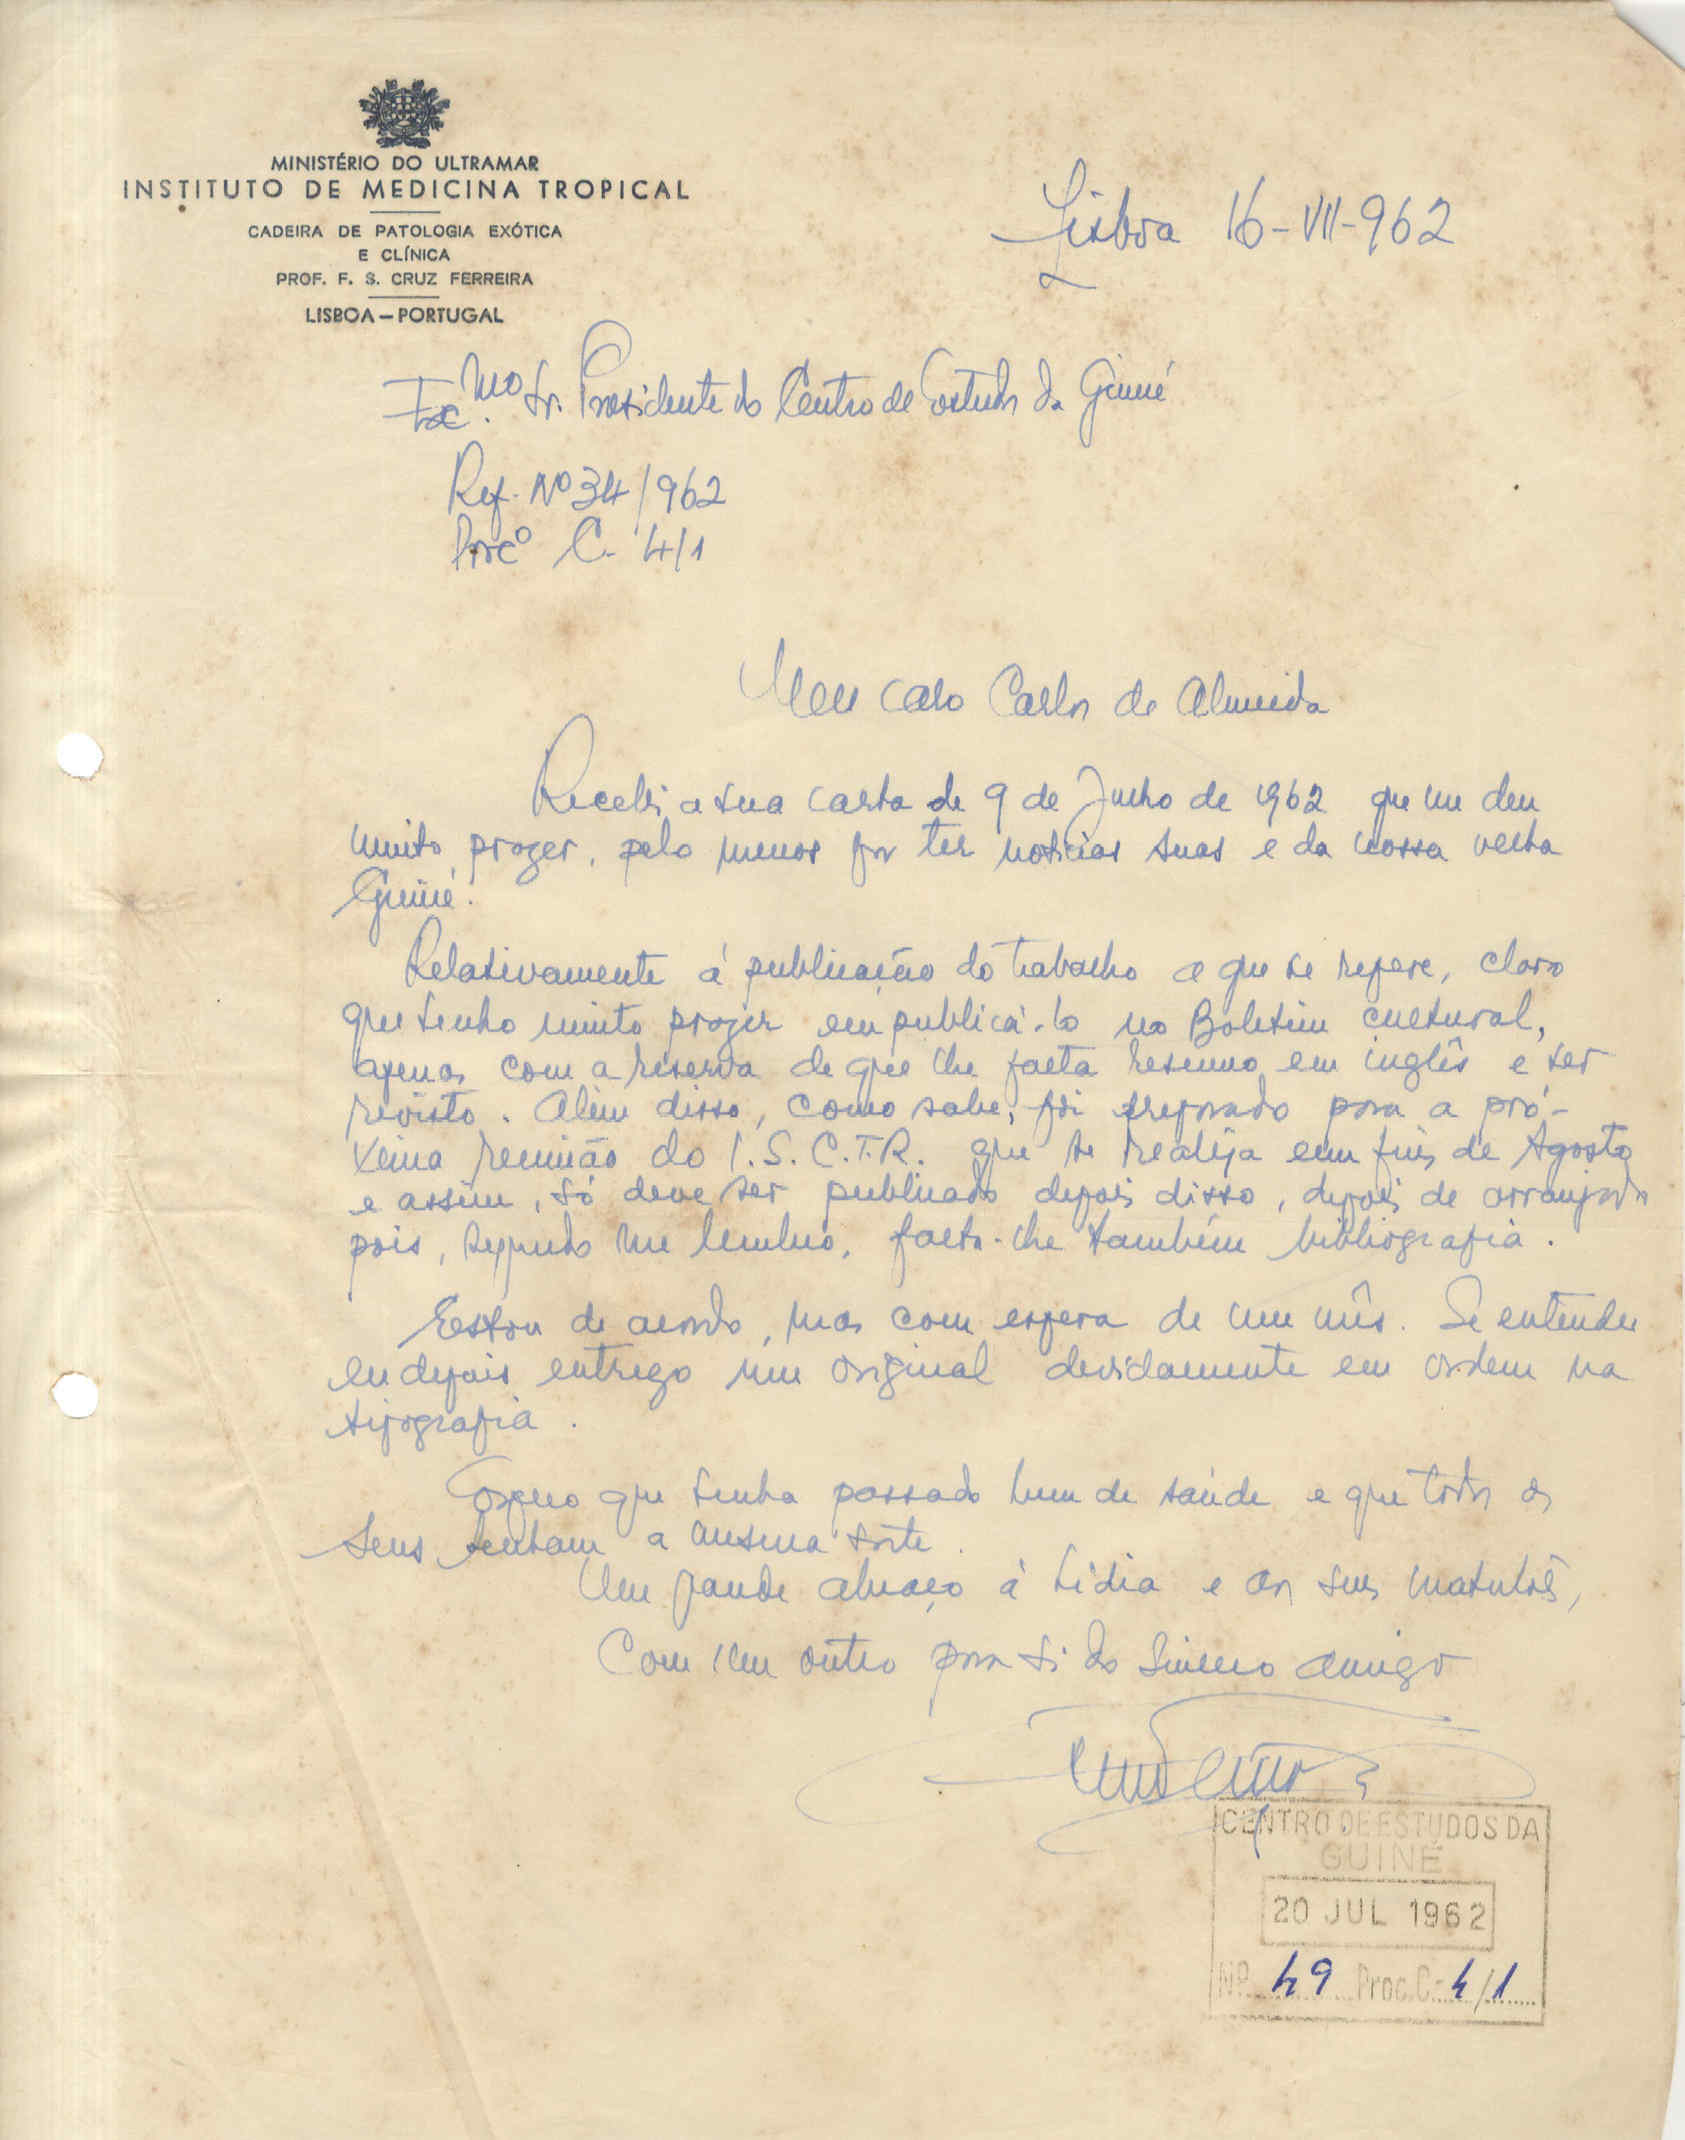 MINISTÉRIO DO ULTRAMAR
INSTITUTO DE MEDICINA TROPICAL
CADEIRA DE PATOLOGIA EXÓTICA
E CLÍNICA
PROF. F. S. CRUZ FERREIRA
LISBOA — PORTUGAL
Lisboa 16-VII-962
Exc.mo Sr. Presidente do Centro de Estudos da Guiné
Ref. Nº 34/962
Proc.º C. 4/1
Meu caro Carlos de Almeida
Recebi a sua carta de 9 de Julho de 1962 que me deu
muito prazer, pelo menos por ter notícias suas e da nossa velha
Guiné.
Relativamente á publicação do trabalho a que se refere, claro
que tenho muito prazer em publicá-lo no Boletim cultural,
apenas com a reserva de que lhe falta resumo em inglês e ser
revisto. Além disso, como sabe, foi preparado para a pró-
xima reunião do I.S.C.T.R. que se realiza em fins de Agosto
e assim, só deve ser publicado depois disso, depois de arranjado
pois, segundo me lembro, falta-lhe também bibliografia.
Estou de acordo, mas com espera de um mês. Se entender
eu depois entrego um original devidamente em ordem na
tipografia.
Espero que tenha passado bem de saúde e que todos os
seus tenham a mesma sorte.
Um grande abraço á Lídia e aos seus
Com um outro para si do sincero amigo
CENTRO DE ESTUDOS DA
GUINÉ
20 JUL 1962
Nº 49 Proc. C.- 4/1